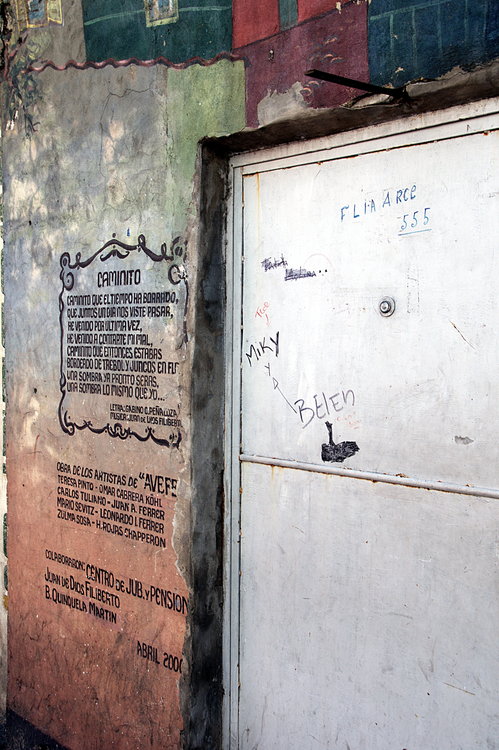 CAMINITO
CAMINITO QUE EL TIEMPO HA BORRADO,
QUE JUNTOS UN DIA NOS VISTE PASAR,
HE VENIDO POR ULTIMA VEZ,
HE VENIDO A CONTARTE MI MAL,
CAMINITO QUE ENTONCES ESTABAS
BORDERO DE TREBOL Y JUNCOS EN FL
UNA SOMBRA YA PRONTO SERAS,
UNA SOMBRA LO MISMO QUE YO...
LETRA: GABINO C. PEÑALOZA
MUSICA: JUAN DE DIOS FILIBERT
OBRA DE LOS ARTISTAS DE "AVEFE
TERESA PINTO - OMAR CABRERA KÖHL
CARLOS TULIANO - JUAN A. FERRER
MARIO SEVITZ - LEONARDO I. FERRER
ZULMA SOSA - H. ROJAS CHAPPERON
COLABORARON: CENTRO DE JUB. Y PENSION
JUAN DE DIOS FILIBERTO
B. QUINQUELA MARTIN
ABRIL 200
FLIA ARCE
555
MIKY
Y
BELEN